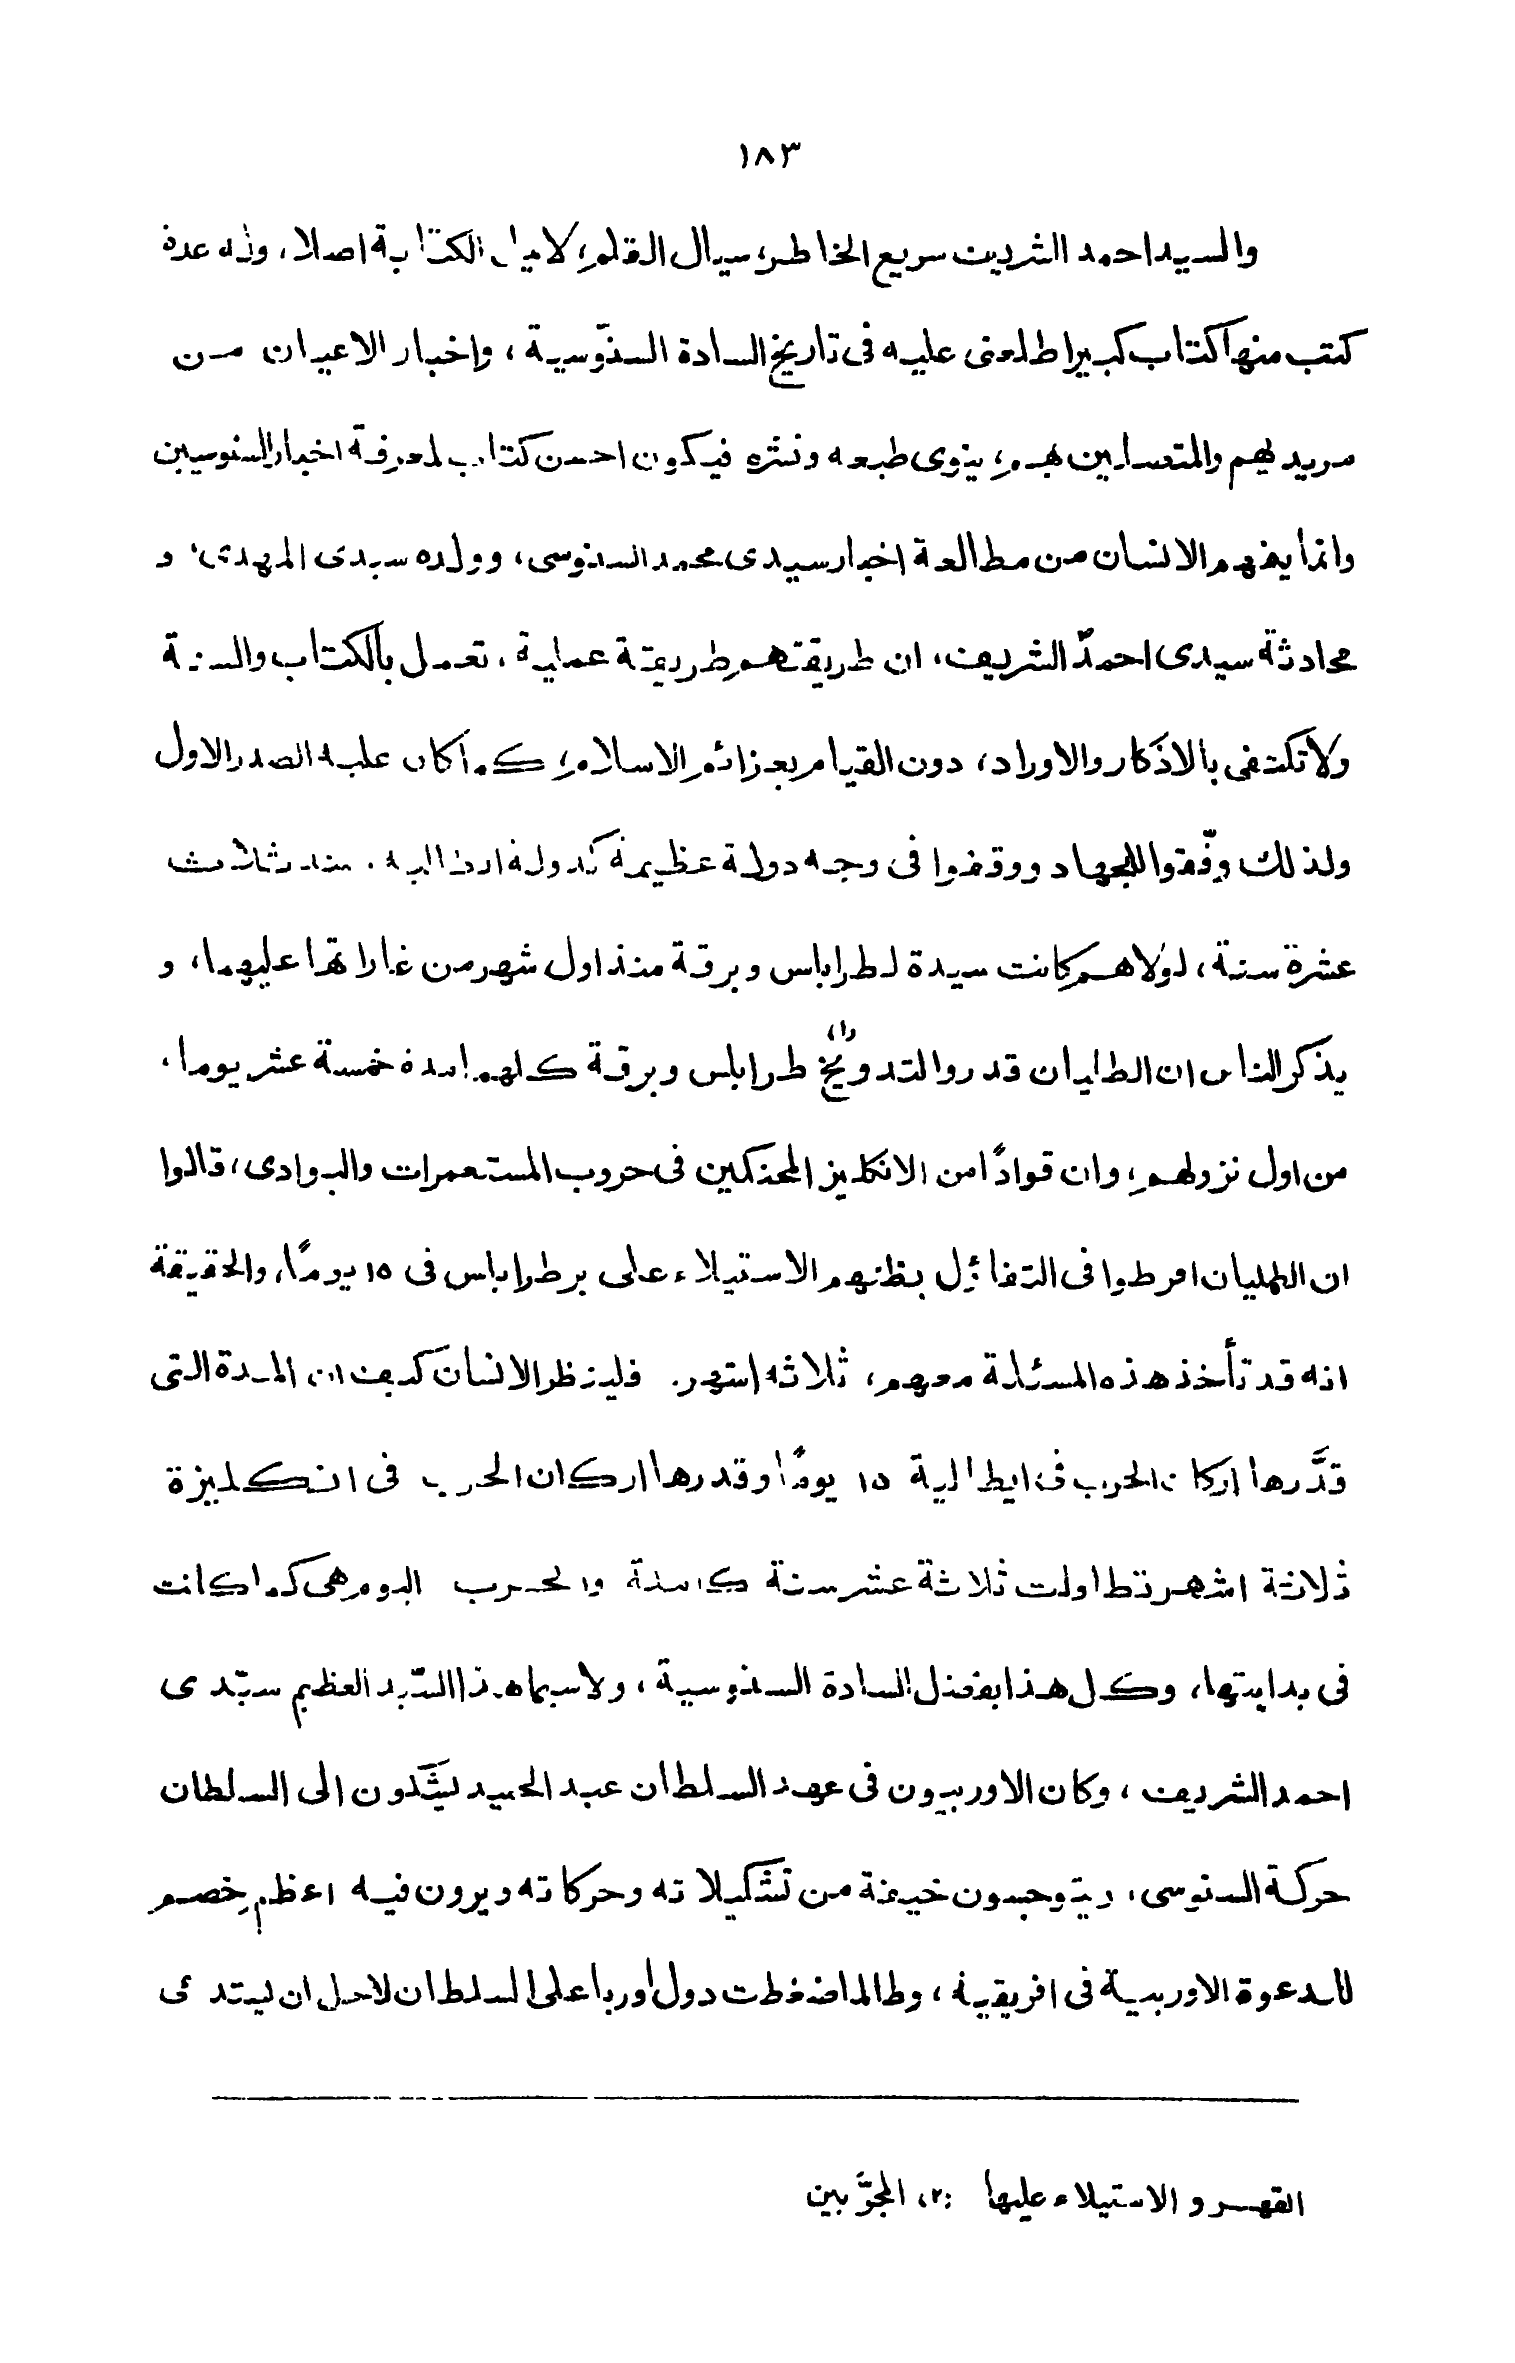 ١٨٣
والسيد احمد الشريف سريع الخاطر، سيال القلم، لا يمل الكتابة اصلا، وله عدة
كتب منها كتاب كبير اطلعنى عليه فى تاريخ السادة السنّوسية، واخبار الاعيان من
مريديهم والمتصلين بهم، ينوى طبعه ونشره فيكون احسن كتاب لمعرفة اخبار السنوسيين
وانما يفهم الانسان من مطالعة اخبار سيدى محمد السنوسى، وولده سيدى المهدى، و
محادثة سيدى احمد الشريف، ان طريقتهم طريقة عملية، تعمل بالكتاب والسنة
ولا تكتفى بالاذكار والاوراد، دون القيام بعزائم الاسلام، كما كان عليه الصدر الاول
ولذلك وفّقوا للجهاد ووقفوا فى وجه دولة عظيمة كدولة ايطاليه، منذ ثلاث
عشرة سنة، لولاهم كانت سيدة لطرابلس وبرقة منذ اول شهر من غاراتها عليهما، و
يذكر الناس ان الطليان قدروا لتدويخ (١) طرابلس وبرقة كلهما مدة خمسة عشر يوما،
من اول نزولهم، وان قوادًا من الانكليز المحنكين فى حروب المستعمرات والبوادى، قالوا
ان الطليان افرطوا فى التفائل بظنهم الاستيلاء على بر طرابلس فى ١٥ يومًا، والحقيقة
انه قد تأخذ هذه المسئلة معهم، ثلاثه اشهر. فلينظر الانسان كيف ان المدة التى
قدَّرها اركان الحرب فى ايطالية ١٥ يومًا وقدرها اركان الحرب فى انكليزة
ثلاثة اشهر تطاولت ثلاثة عشر سنة كاملة والحرب اليوم هى كما كانت
فى بدايتها، وكل هذا بفضل السادة السنوسية، ولاسيما هذا السّيد العظيم سيّدى
احمد الشريف، وكان الاوربيون فى عهد السلطان عبد الحميد يشكون الى السلطان
حركة السنوسى، ويتوجسون خيفة من تشكيلاته وحركاته ويرون فيه اعظم خصم
للدعوة الاوربية فى افريقية، وطالما ضغطت دول أوربا على السلطان لاجل ان يستدعى
القهر و الاستيلاء عليها (٢) المجرّبين